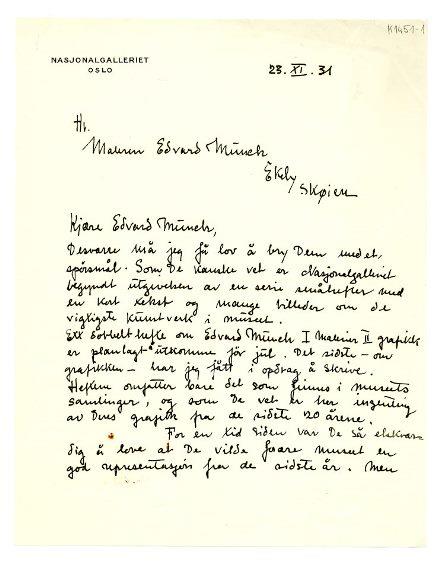 K1451-1
NASJONALGALLERIET
OSLO
23. XI. 31
Hr.
Maleren Edvard Munch
Ekely
Skøien
Kjære Edvard Munch,
Desværre må jeg få lov å bry Dem med et
spörsmål. Som De kanske vet er Nasjonalgalleriet
begyndt utgivelsen av en serie småhefter med
en kort tekst og mange billeder om de
vigtigste kunstverk i museet.
Ett dobbelthefte om Edvard Munch I Malerier II grafikk
er planlagt å utkomme før jul. Det sidste – om
grafikken – har jeg fått i opdrag å skrive.
Heftene omfatter bare det som finnes i museets
samlinger, og som De vet er her ingenting
av Deres grafikk fra de sidste 20 årene.
For en tid siden var De så elskvær-
dig å love at De vilde forære museet en
god representasjon fra de sidste år. Men